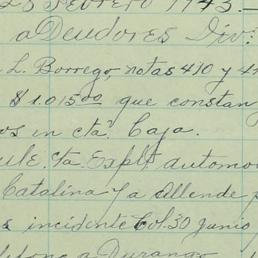 28 Febrero 1943.
a Deudores Div:
L. Borrego, notas 410 y 4
$1.015.00 que constan
os in cta. Caja.
Cta. Explt. automo
Catalina a Allende
incidente Col. 30 Junio
a Durango